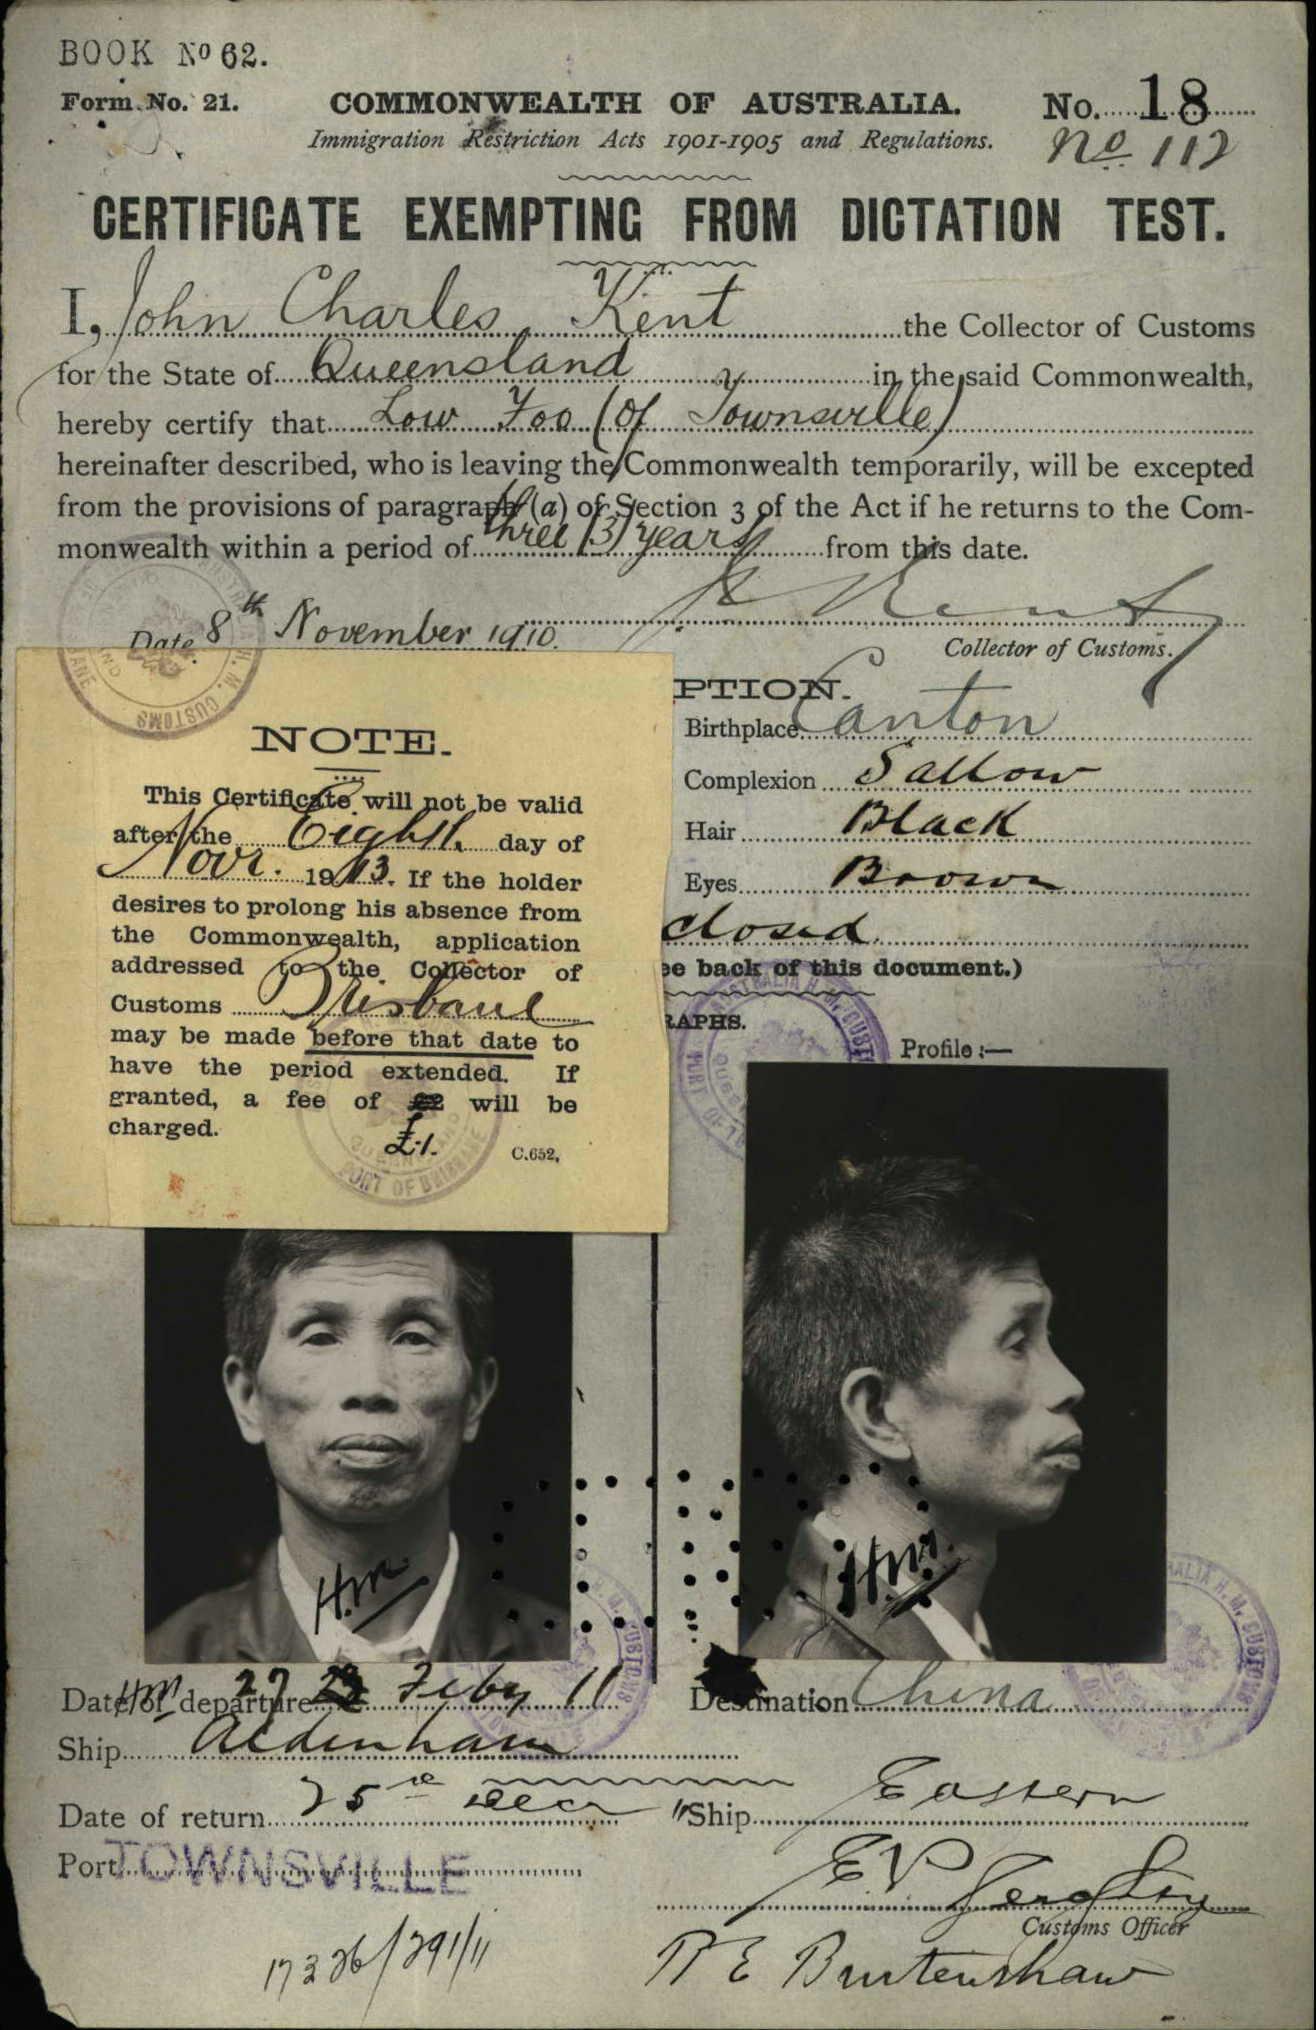 BOOK No 62.
Form No. 21.
COMMONWEALTH OF AUSTRALIA.
No. 18
Immigration Restriction Acts 1901-1905 and Regulations.
No 112
CERTIFICATE EXEMPTING FROM DICTATION TEST.
I, John Charles Kent the Collector of Customs
for the State of Queensland in the said Commonwealth,
hereby certify that Low Foo (of Townsville)
hereinafter described, who is leaving the Commonwealth temporarily, will be excepted
from the provisions of paragraph (a) of Section 3 of the Act if he returns to the Com-
monwealth within a period of three (3) years from this date.
Date 8th November 1910.
Kent
Collector of Customs.
PTION.
Birthplace Canton
Complexion Sallow
Hair Black
Eyes Brown
closed
ee back of this document.)
RAPHS.
Profile :—
NOTE.
This Certificate will not be valid
after the Eighth day of
Novr. 1913. If the holder
desires to prolong his absence from
the Commonwealth, application
addressed to the Collector of
Customs Brisbane
may be made before that date to
have the period extended. If
granted, a fee of £2 will be
charged. £1.
C.652,
PORT OF BRISBANE
H.M.
H.M.
Date of departure 27 Feby 11
HM
Destination China
Ship Aldenham
Date of return 25th Decr "
Ship Eastern
Port TOWNSVILLE
Customs Officer
17326/291/11
R E Burtenshaw